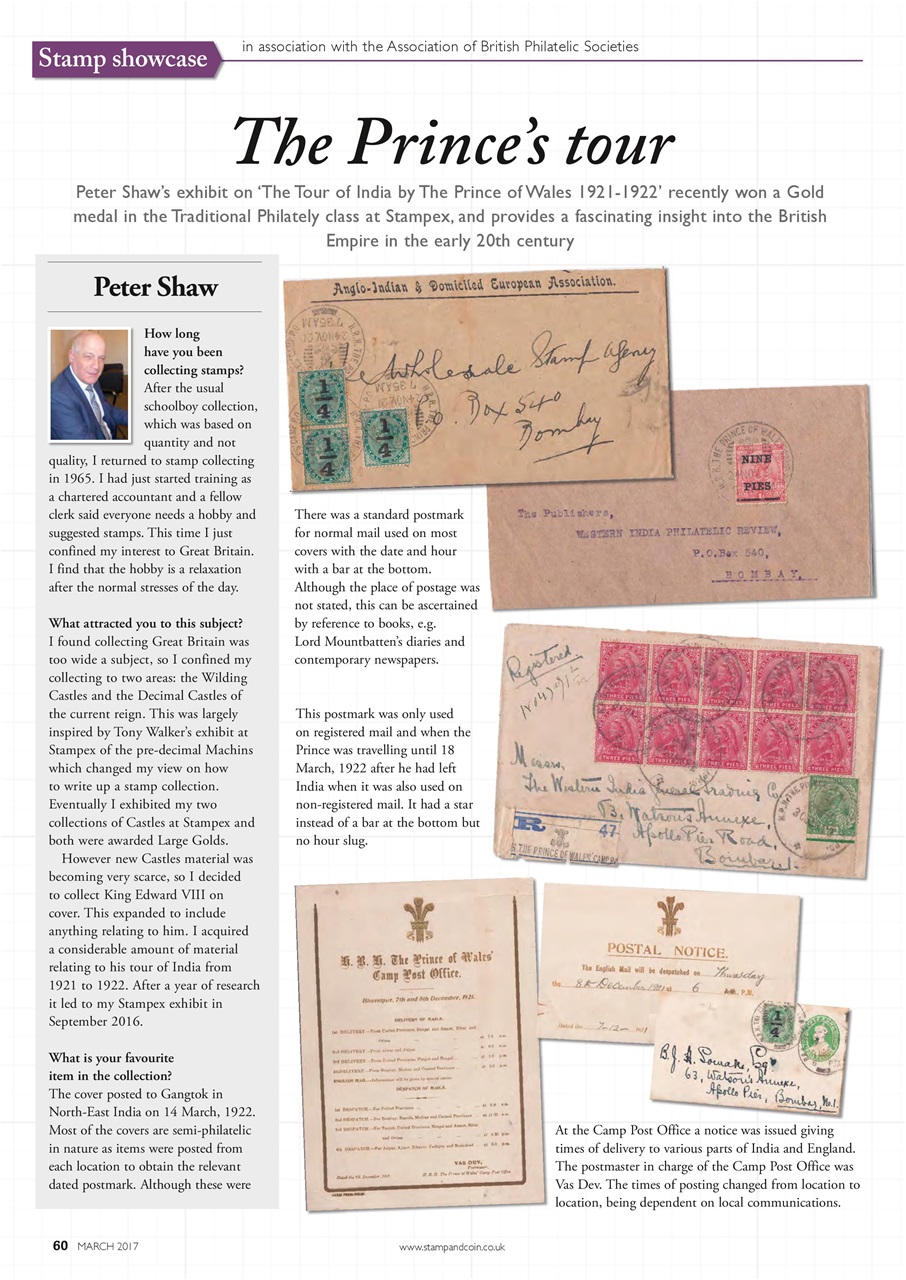 Stamp showcase
in association with the Association of British Philatelic Societies
The Prince's tour
Peter Shaw's exhibit on 'The Tour of India by The Prince of Wales 1921-1922' recently won a Gold
medal in the Traditional Philately class at Stampex, and provides a fascinating insight into the British
Empire in the early 20th century
Peter Shaw
How long
have you been
collecting stamps?
After the usual
schoolboy collection,
which was based on
quantity and not
quality, I returned to stamp collecting
in 1965. I had just started training as
a chartered accountant and a fellow
clerk said everyone needs a hobby and
suggested stamps. This time I just
confined my interest to Great Britain.
I find that the hobby is a relaxation
after the normal stresses of the day.
What attracted you to this subject?
I found collecting Great Britain was
too wide a subject, so I confined my
collecting to two areas: the Wilding
Castles and the Decimal Castles of
the current reign. This was largely
inspired by Tony Walker's exhibit at
Stampex of the pre-decimal Machins
which changed my view on how
to write up a stamp collection.
Eventually I exhibited my two
collections of Castles at Stampex and
both were awarded Large Golds.
However new Castles material was
becoming very scarce, so I decided
to collect King Edward VIII on
cover. This expanded to include
anything relating to him. I acquired
a considerable amount of material
relating to his tour of India from
1921 to 1922. After a year of research
it led to my Stampex exhibit in
September 2016.
What is your favourite
item in the collection?
The cover posted to Gangtok in
North-East India on 14 March, 1922.
Most of the covers are semi-philatelic
in nature as items were posted from
each location to obtain the relevant
dated postmark. Although these were
Anglo-Indian & Domiciled European Association.
Wholesale Stamp Agency
P.O. Box 540
Bombay
1/4
1/4
1/4
24 NOV 21
7.35 AM
NINE
PIES
The Publishers,
WESTERN INDIA PHILATELIC REVIEW,
P.O.Box 540,
BOMBAY.
There was a standard postmark
for normal mail used on most
covers with the date and hour
with a bar at the bottom.
Although the place of postage was
not stated, this can be ascertained
by reference to books, e.g.
Lord Mountbatten's diaries and
contemporary newspapers.
This postmark was only used
on registered mail and when the
Prince was travelling until 18
March, 1922 after he had left
India when it was also used on
non-registered mail. It had a star
instead of a bar at the bottom but
no hour slug.
Registered
THREE PIES
Messrs,
The Western India General Trading Co.
B. Watson's Annexe,
Apollo Pier Road,
Bombay 1.
R
47
THE PRINCE OF WALES' CAMP
H. R. H. The Prince of Wales'
Camp Post Office.
Bharatpur, 7th and 8th December, 1921.
DELIVERY OF MAILS.
DESPATCH OF MAILS.
VAS DEV,
Postmaster,
H. R. H. The Prince of Wales' Camp Post Office
POSTAL NOTICE.
The English Mail will be despatched on Thursday
the 8th December 1921 at 6 P.M.
Dated the 7-12-1921
1/4
B. J. A. Somake, Esqr
63, Watson's Annexe,
Apollo Pier, Bombay, No.1.
At the Camp Post Office a notice was issued giving
times of delivery to various parts of India and England.
The postmaster in charge of the Camp Post Office was
Vas Dev. The times of posting changed from location to
location, being dependent on local communications.
60 MARCH 2017
www.stampandcoin.co.uk